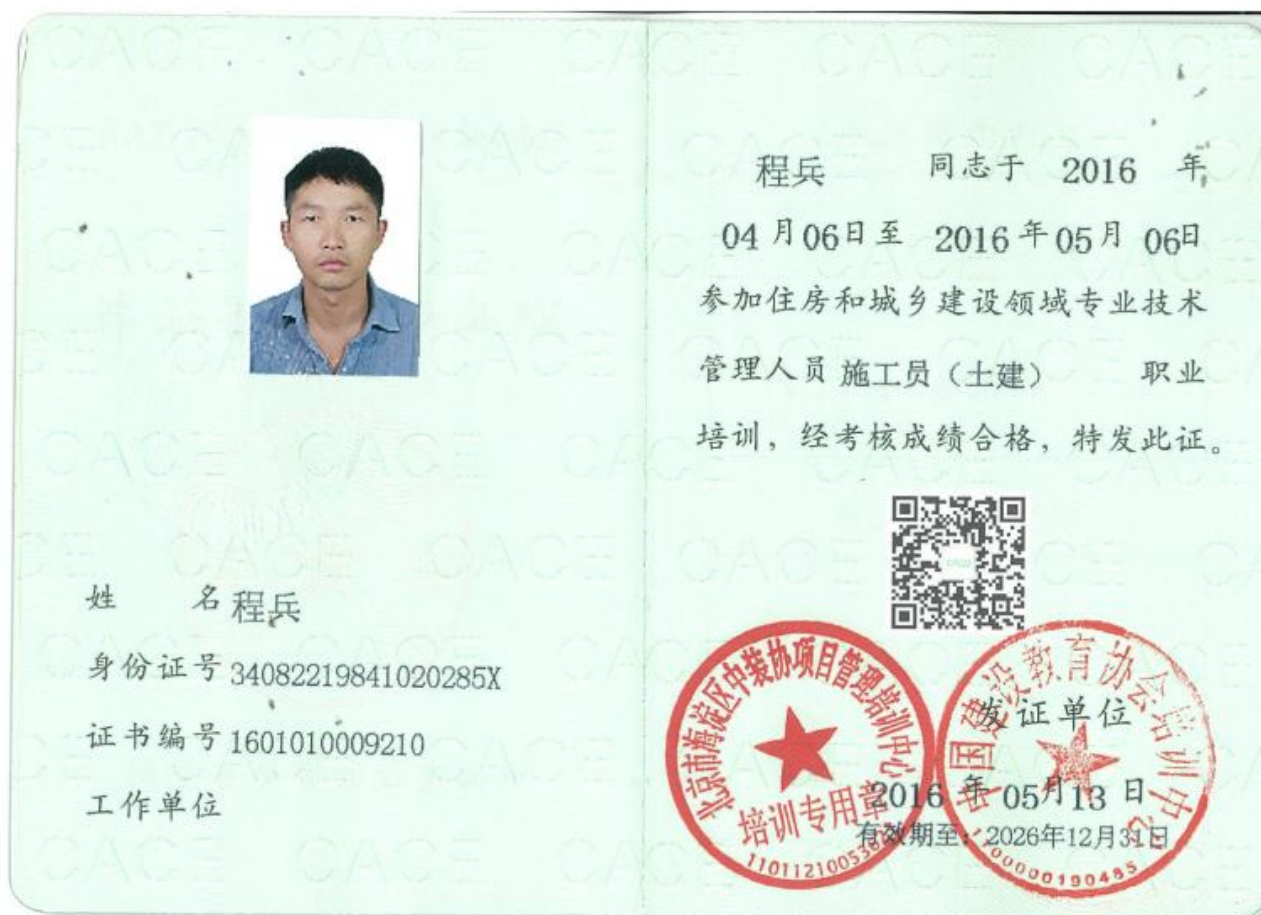 姓 名 程兵
身份证号 34082219841020285X
证书编号 1601010009210
工作单位
程兵 同志于 2016 年
04 月 06日至 2016 年 05 月 06日
参加住房和城乡建设领域专业技术
管理人员 施工员（土建） 职业
培训，经考核成绩合格，特发此证。
北京市海淀区中装协项目管理培训中心
培训专用章
中国建设教育协会培训中心
发证单位
2016 年 05月 13 日
有效期至：2026年12月31日
1100000190485
CACE